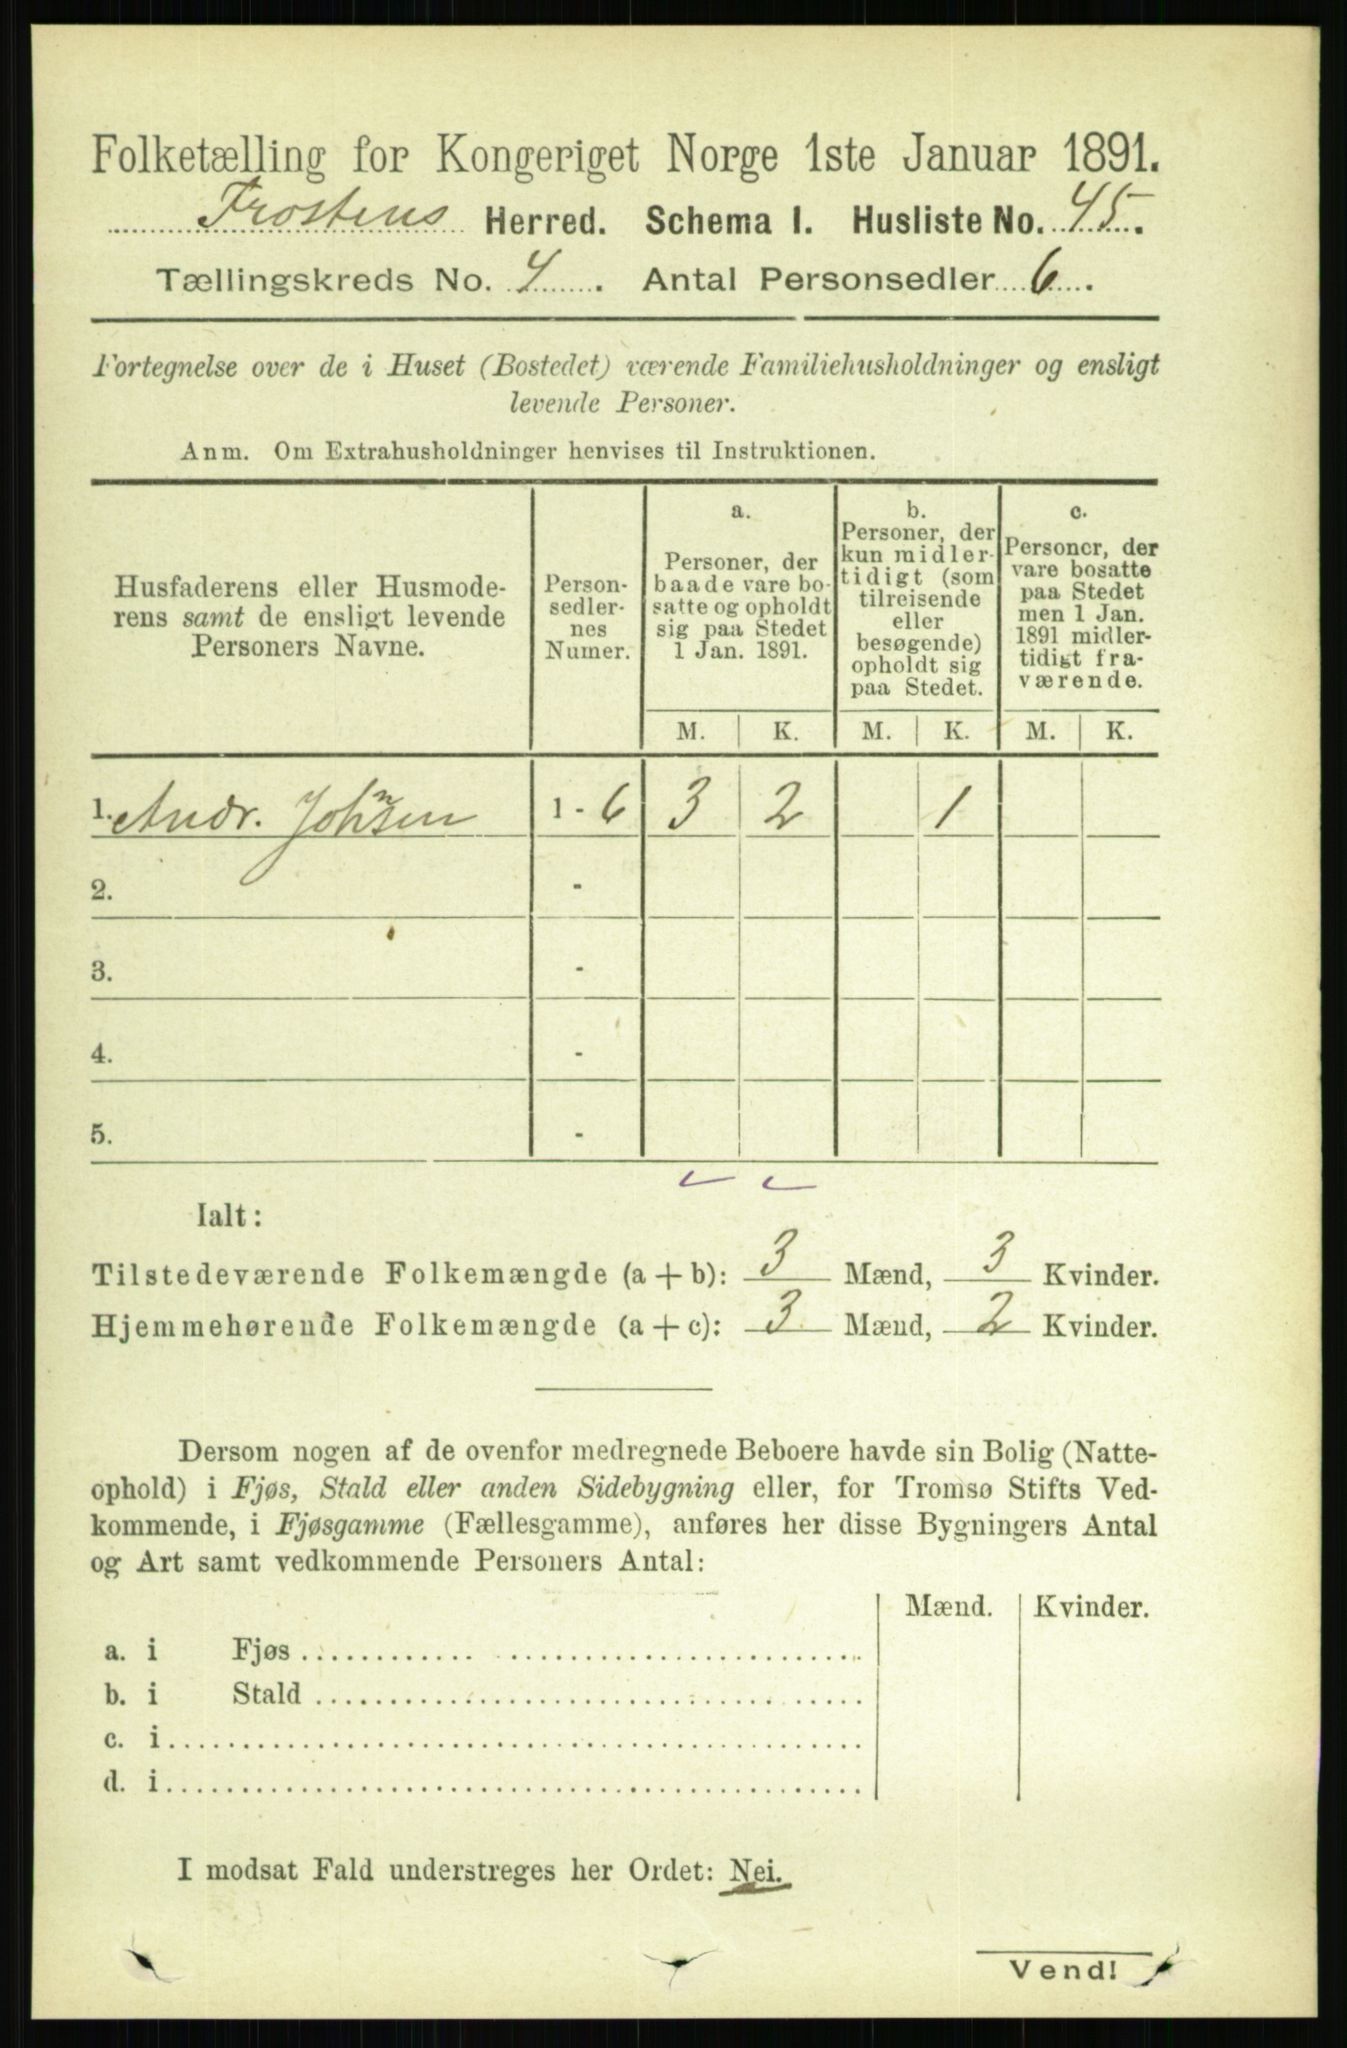 Folketælling for Kongeriget Norge 1ste Januar 1891.
Frostens Herred. Schema I. Husliste No. 45.
Tællingskreds No. 4. Antal Personsedler 6.
Fortegnelse over de i Huset (Bostedet) værende Familiehusholdninger og ensligt
levende Personer.
Anm. Om Extrahusholdninger henvises til Instruktionen.
Husfaderens eller Husmode-
rens samt de ensligt levende
Personers Navne.
Person-
sedler-
nes
Numer.
a.
Personer, der
baade vare bo-
satte og opholdt
sig paa Stedet
1 Jan. 1891.
b.
Personer, der
kun midler-
tidigt (som
tilreisende
eller
besøgende)
opholdt sig
paa Stedet.
c.
Personer, der
vare bosatte
paa Stedet
men 1 Jan.
1891 midler-
tidigt fra-
værende.
M. K. M. K. M. K.
1. Andr. Johnsen 1 - 6 3 2 1
2. -
3. -
4. -
5. -
Ialt:
Tilstedeværende Folkemængde (a + b): 3 Mænd, 3 Kvinder.
Hjemmehørende Folkemængde (a + c): 3 Mænd, 2 Kvinder.
Dersom nogen af de ovenfor medregnede Beboere havde sin Bolig (Natte-
ophold) i Fjøs, Stald eller anden Sidebygning eller, for Tromsø Stifts Ved-
kommende, i Fjøsgamme (Fællesgamme), anføres her disse Bygningers Antal
og Art samt vedkommende Personers Antal:
Mænd. Kvinder.
a. i Fjøs
b. i Stald
c. i
d. i
I modsat Fald understreges her Ordet: Nei.
Vend!